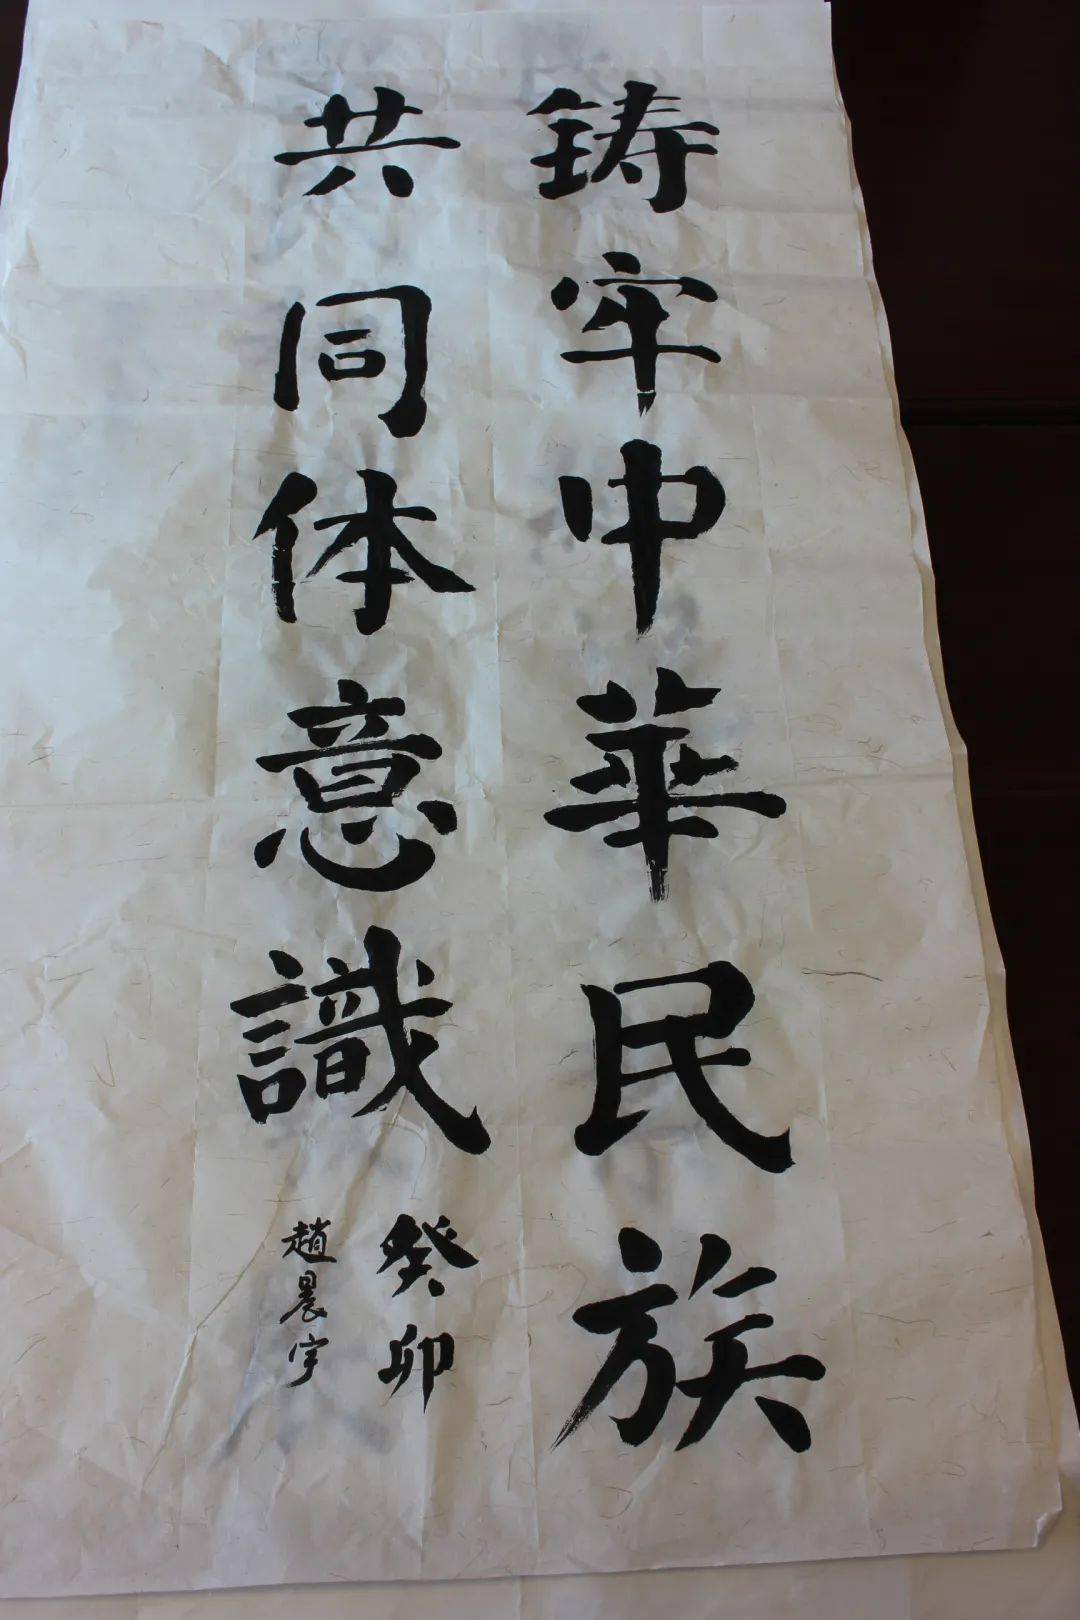 铸牢中華民族
共同体意識
癸卯
趙晨宇